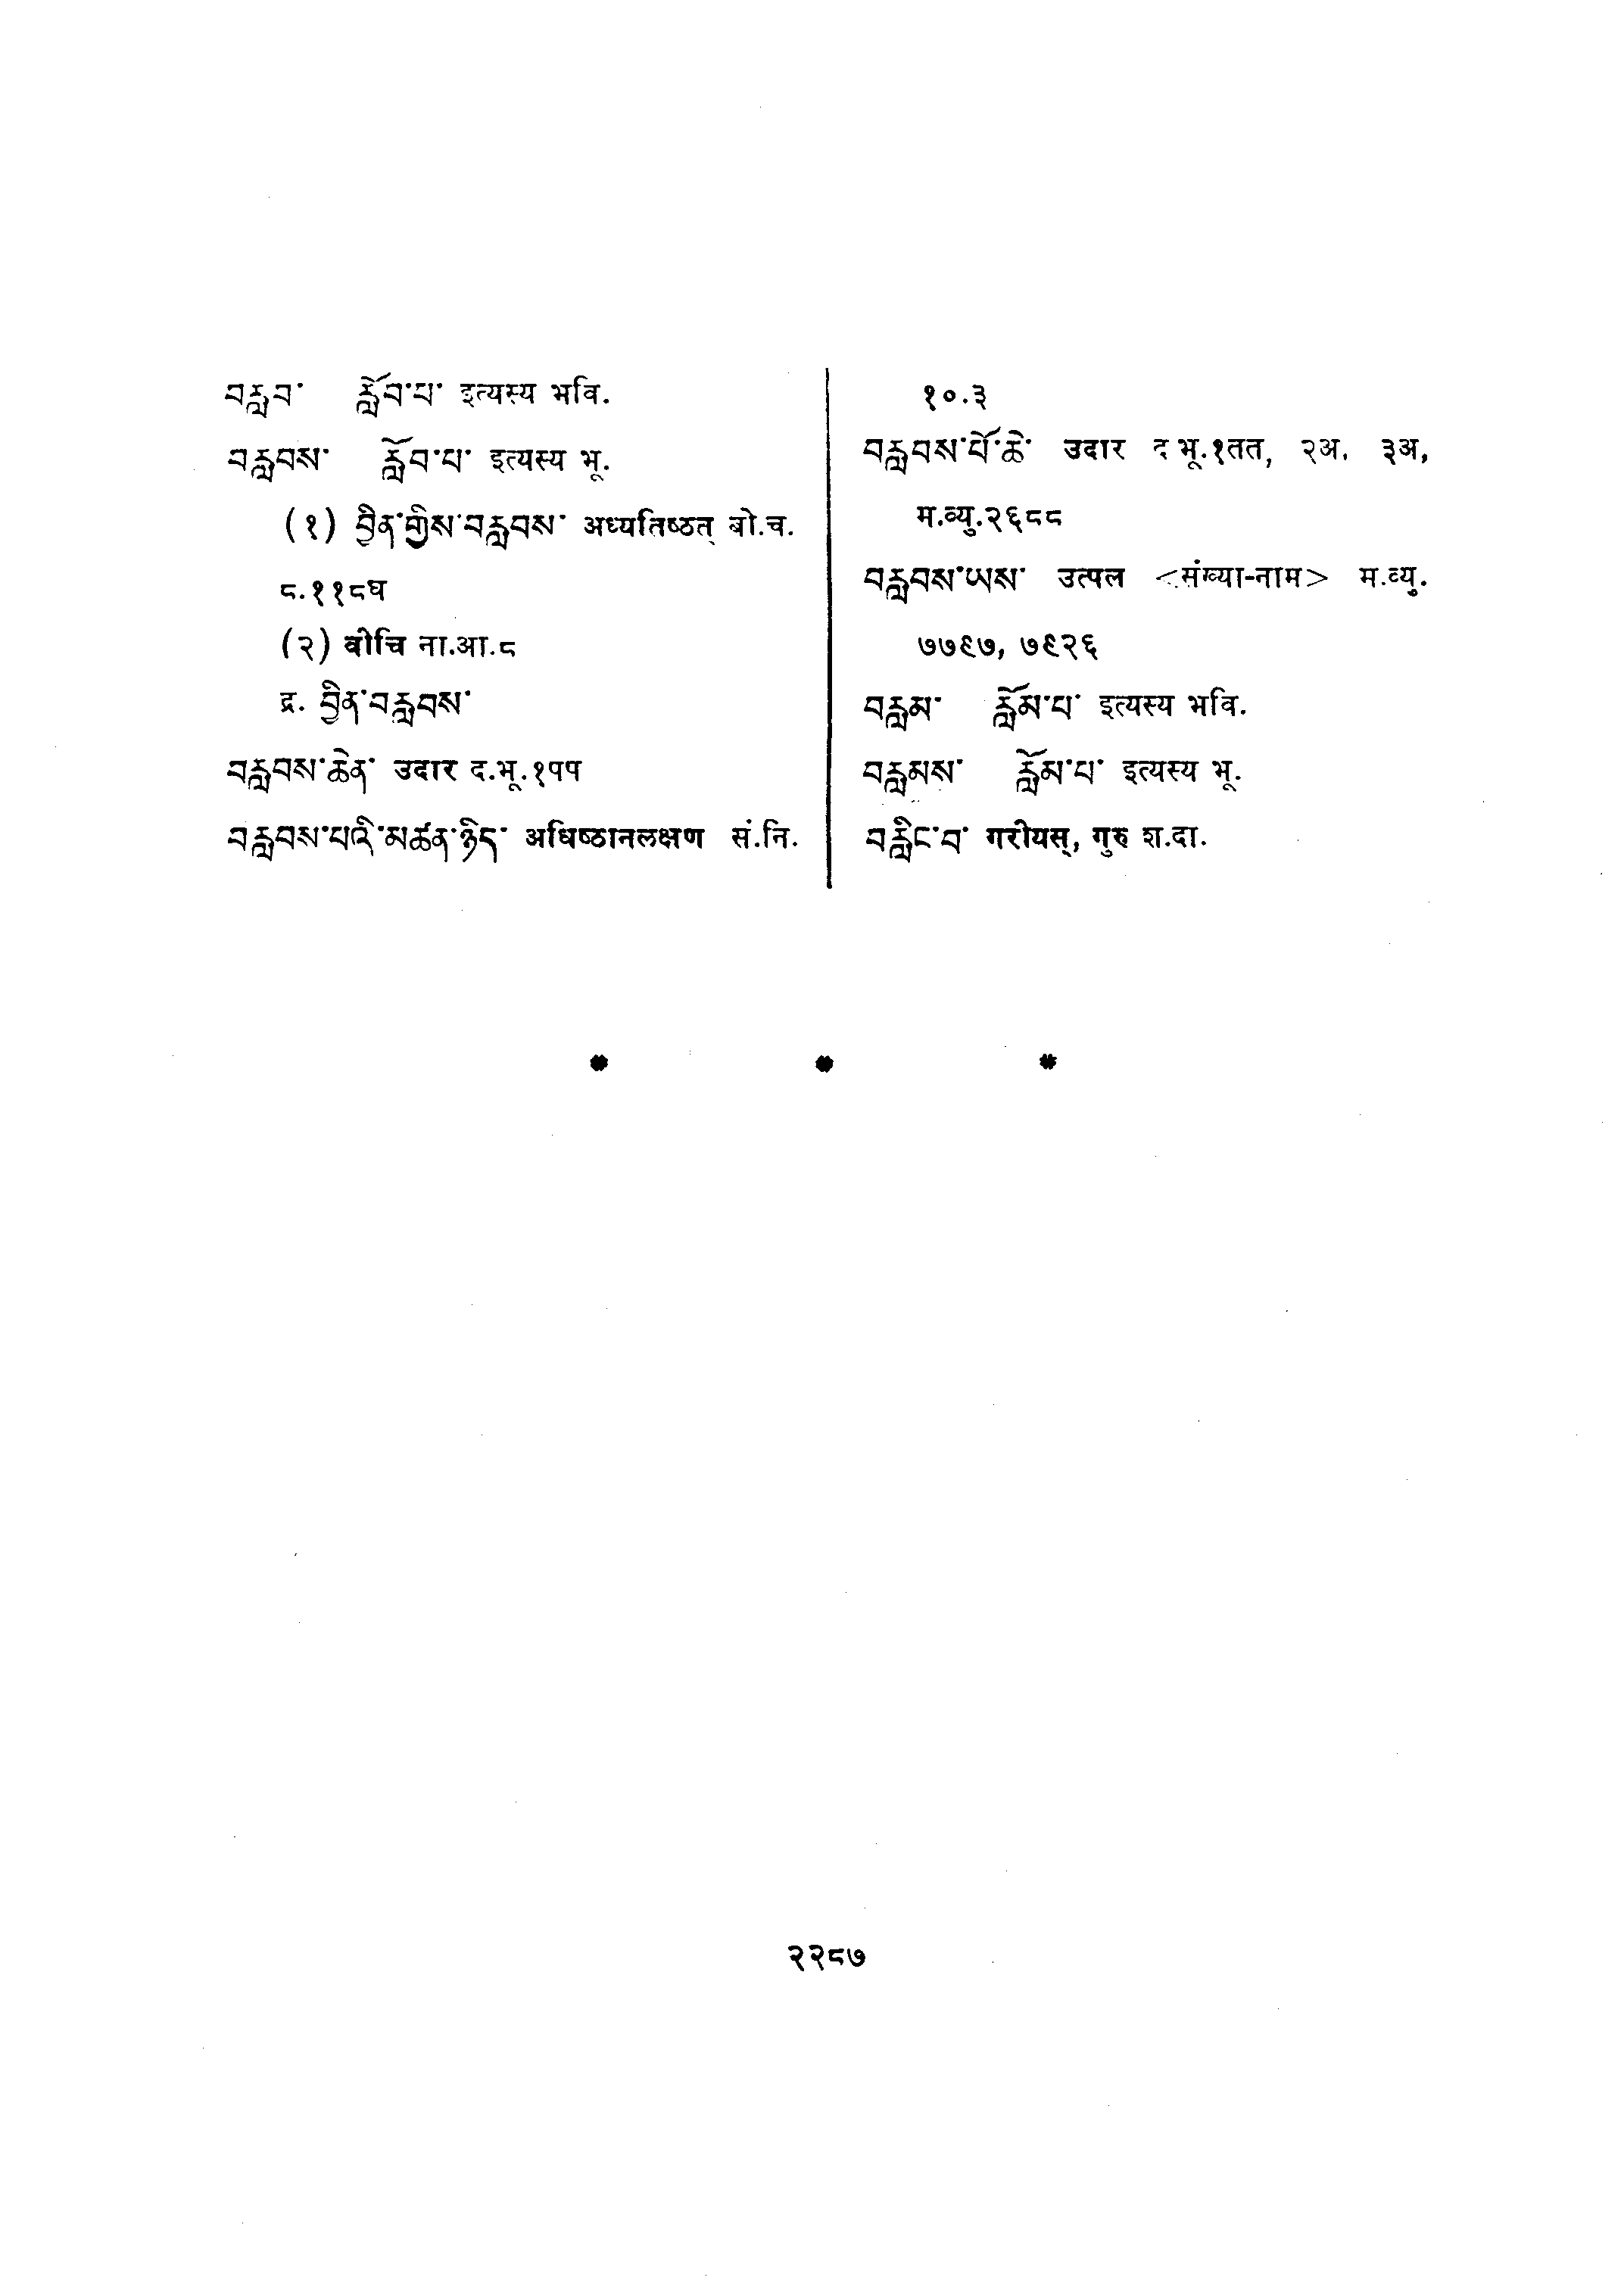 བརླབ་ རློབ་པ་ इत्यस्य भवि.
བརླབས་ རློབ་པ་ इत्यस्य भू.
(१) བྱིན་གྱིས་བརླབས་ अध्यतिष्ठत् बो.च.
८.११८घ
(२) वीचि ना.आ.८
द्र. བྱིན་བརླབས་
བརླབས་ཆེན་ उदार द.भू.१पप
བརླབས་པའི་མཚན་ཉིད་ अधिष्ठानलक्षण सं.नि.
१०.३
བརླབས་པོ་ཆེ་ उदार द भू.१तत, २अ. ३अ,
म.व्यु.२६८८
བརླབས་ཡས་ उत्पल <संख्या-नाम> म.व्यु.
७७९७, ७९२६
བརླམ་ རློམ་པ་ इत्यस्य भवि.
བརླམས་ རློམ་པ་ इत्यस्य भू.
བརླིང་བ་ गरीयस्, गुरु श.दा.
* * *
२२८७